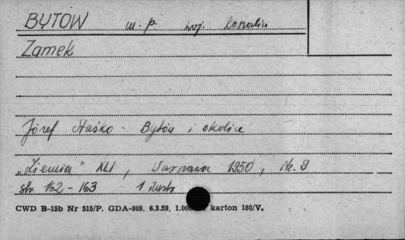 BYTÓW m.p. woj. koszalin
Zamek
Józef Staśko - Bytów i okolice
"Ziemia" XLI, Warszawa 1950, Nr. 9
str 162-163 1 ilustr
CWD B-15b Nr 515/P. GDA-809. 6.3.59, 1.000 karton 180/V.